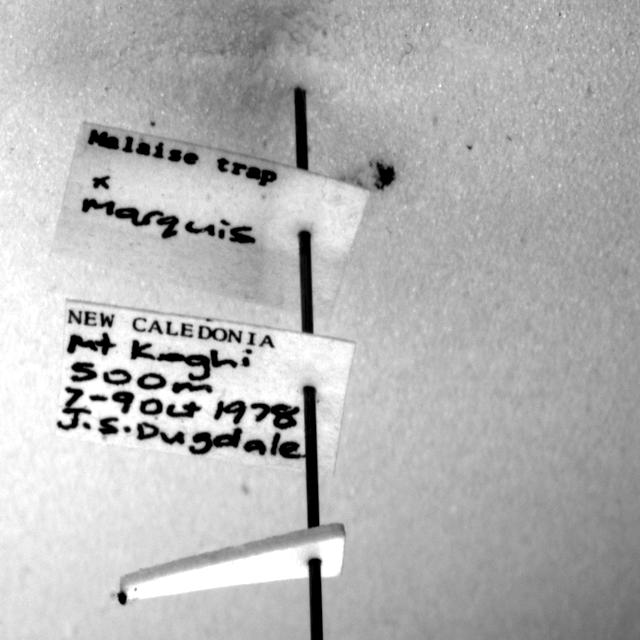 Malaise trap
x
Marquis
NEW CALEDONIA
Mt Koghi
500m
7-9 Oct 1978
J.S. Dugdale